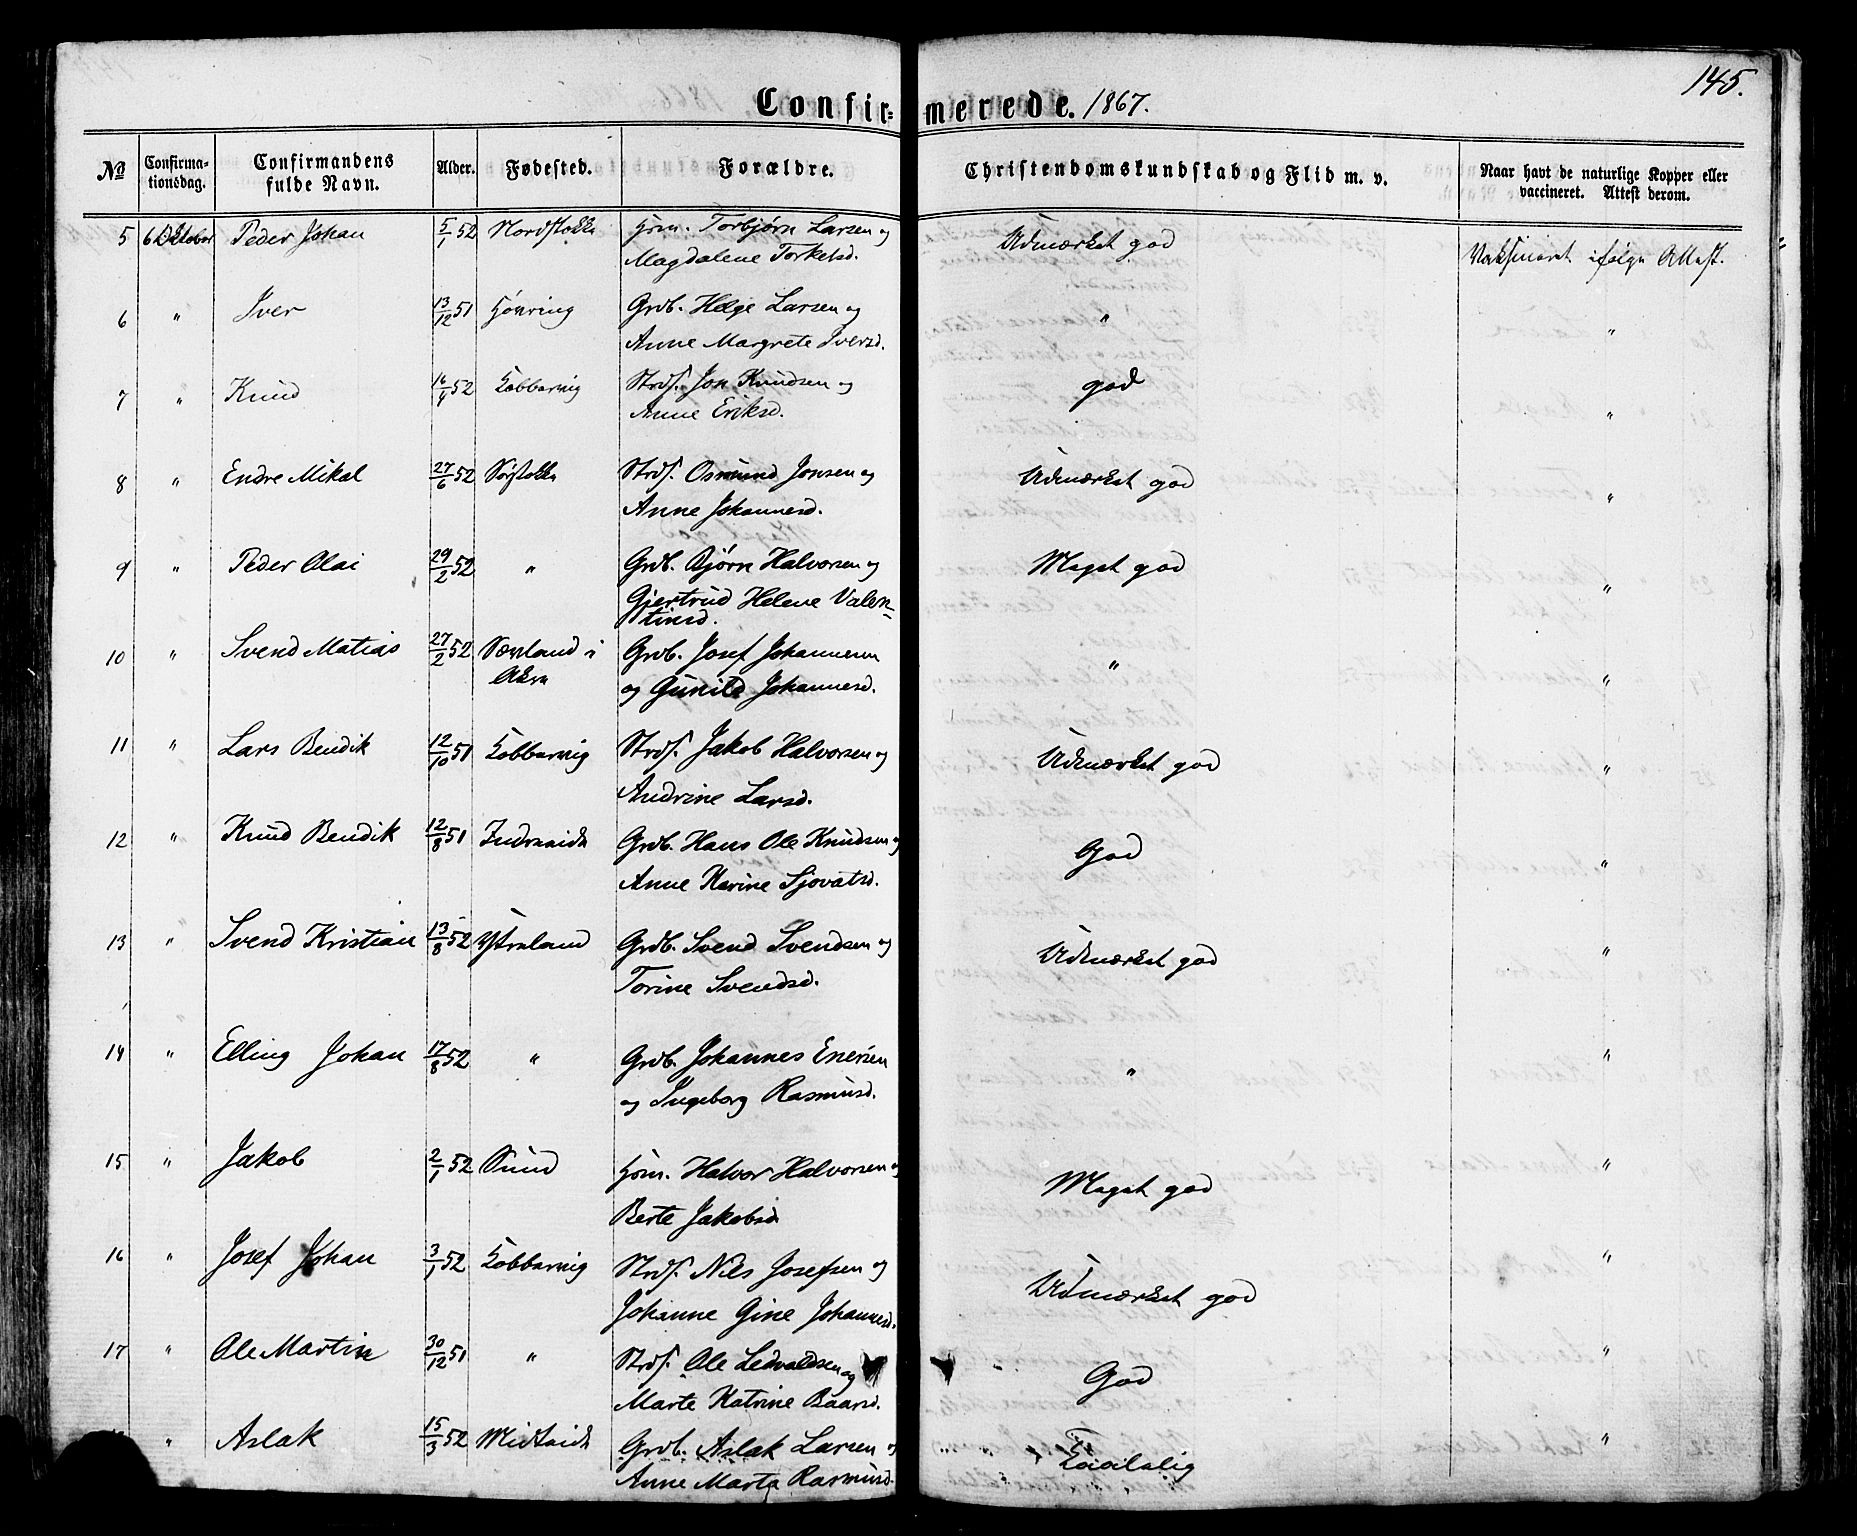 145.
Confirmerede. 1867.
No Confirma-tionsdag. Confirmandens fulde Navn. Alder. Fødested. Forældre. Christendomskundskab og Flid m. v. Naar havt de naturlige Kopper eller vaccineret. Attest derom.
5 6 Oktober Peder Johan 5/1 52 Nordstokke Hsm. Torbjørn Larsen og Udmærket god Vaksineret ifølge Attest.
Magdalene Torkelsd.
6 " Iver 13/12 51 Høvring Grdb. Helge Larsen og " "
Anne Margrete Iversd.
7 " Knud 16/4 52 Kobbervig Strdf. Jon Knudsen og god "
Anne Eriksd.
8 " Endre Mikal 27/6 52 Sørstokke Strdf. Osmund Jonsen og Udmærket god "
Anne Johannesd.
9 " Peder Olai 29/2 52 " Grdb. Bjørn Halvorsen og Meget god "
Gjertrud Helene Valen-
tinsd.
10 " Svend Matias 27/2 52 Sævland i Grdb. Josef Johannesen " "
Akra og Gunild Johannesd.
11 " Lars Bendik 12/10 51 Kobbervig Strdf. Jakob Halvorsen og Udmærket god "
Andrine Larsd.
12 " Knud Bendik 12/8 51 Indreeide Grdb. Hans Ole Knudsen og God "
Anne Karine Sjovatsd.
13 " Svend Kristian 13/8 52 Ystraland Grdb. Svend Svendsen og Udmærket god "
Torine Svendsd.
14 " Elling Johan 17/8 52 " Grdb. Johannes Enersen " "
og Ingeborg Rasmusd.
15 " Jakob 2/1 52 Sund Hsm. Halvor Halvorsen og Meget god "
Berte Jakobsd.
16 " Josef Johan 3/1 52 Kobbervig Strdf. Nils Josefsen og Udmærket god "
Johanne Gine Johannesd.
17 " Ole Martin 30/12 51 " Strdf. Ole Ledvaldsen og God "
Marte Katrine Baarsd.
" Aslak 15/3 52 Midteide Grdb. Aslak Larsen og Taalelig "
Anne Marta Rasmusd.